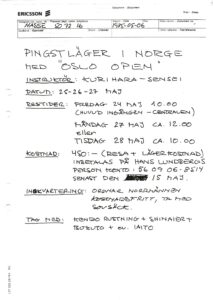 ERICSSON
MASSE
1985-05-06
PINGSTLÄGER I NORGE
MED "OSLO OPEN"
INSTRUKTÖR: KURIHARA-SENSEI
DATUM: 25-26-27 MAJ
RESTIDER: FREDAG 24 MAJ 10.00
(HUVUDINGÅNGEN - CENTRALEN)
MÅNDAG 27 MAJ ca. 12.00
eller
TISDAG 28 MAJ ca. 10.00
KOSTNAD: 480:- (RESA + LÄGERKOSTNAD)
INBETALAS PÅ HANS LUNDBERGS
PERSONKONTO: 56 09 06-8514
SENAST DEN 15 MAJ.
INKVARTERING: ORDNAR NORRMÄNNEN
TA MED
SOVSÄCK.
TAG MED: KENDO RUSTNING + SHINAIER +
BOKUTO + ev. IAITO